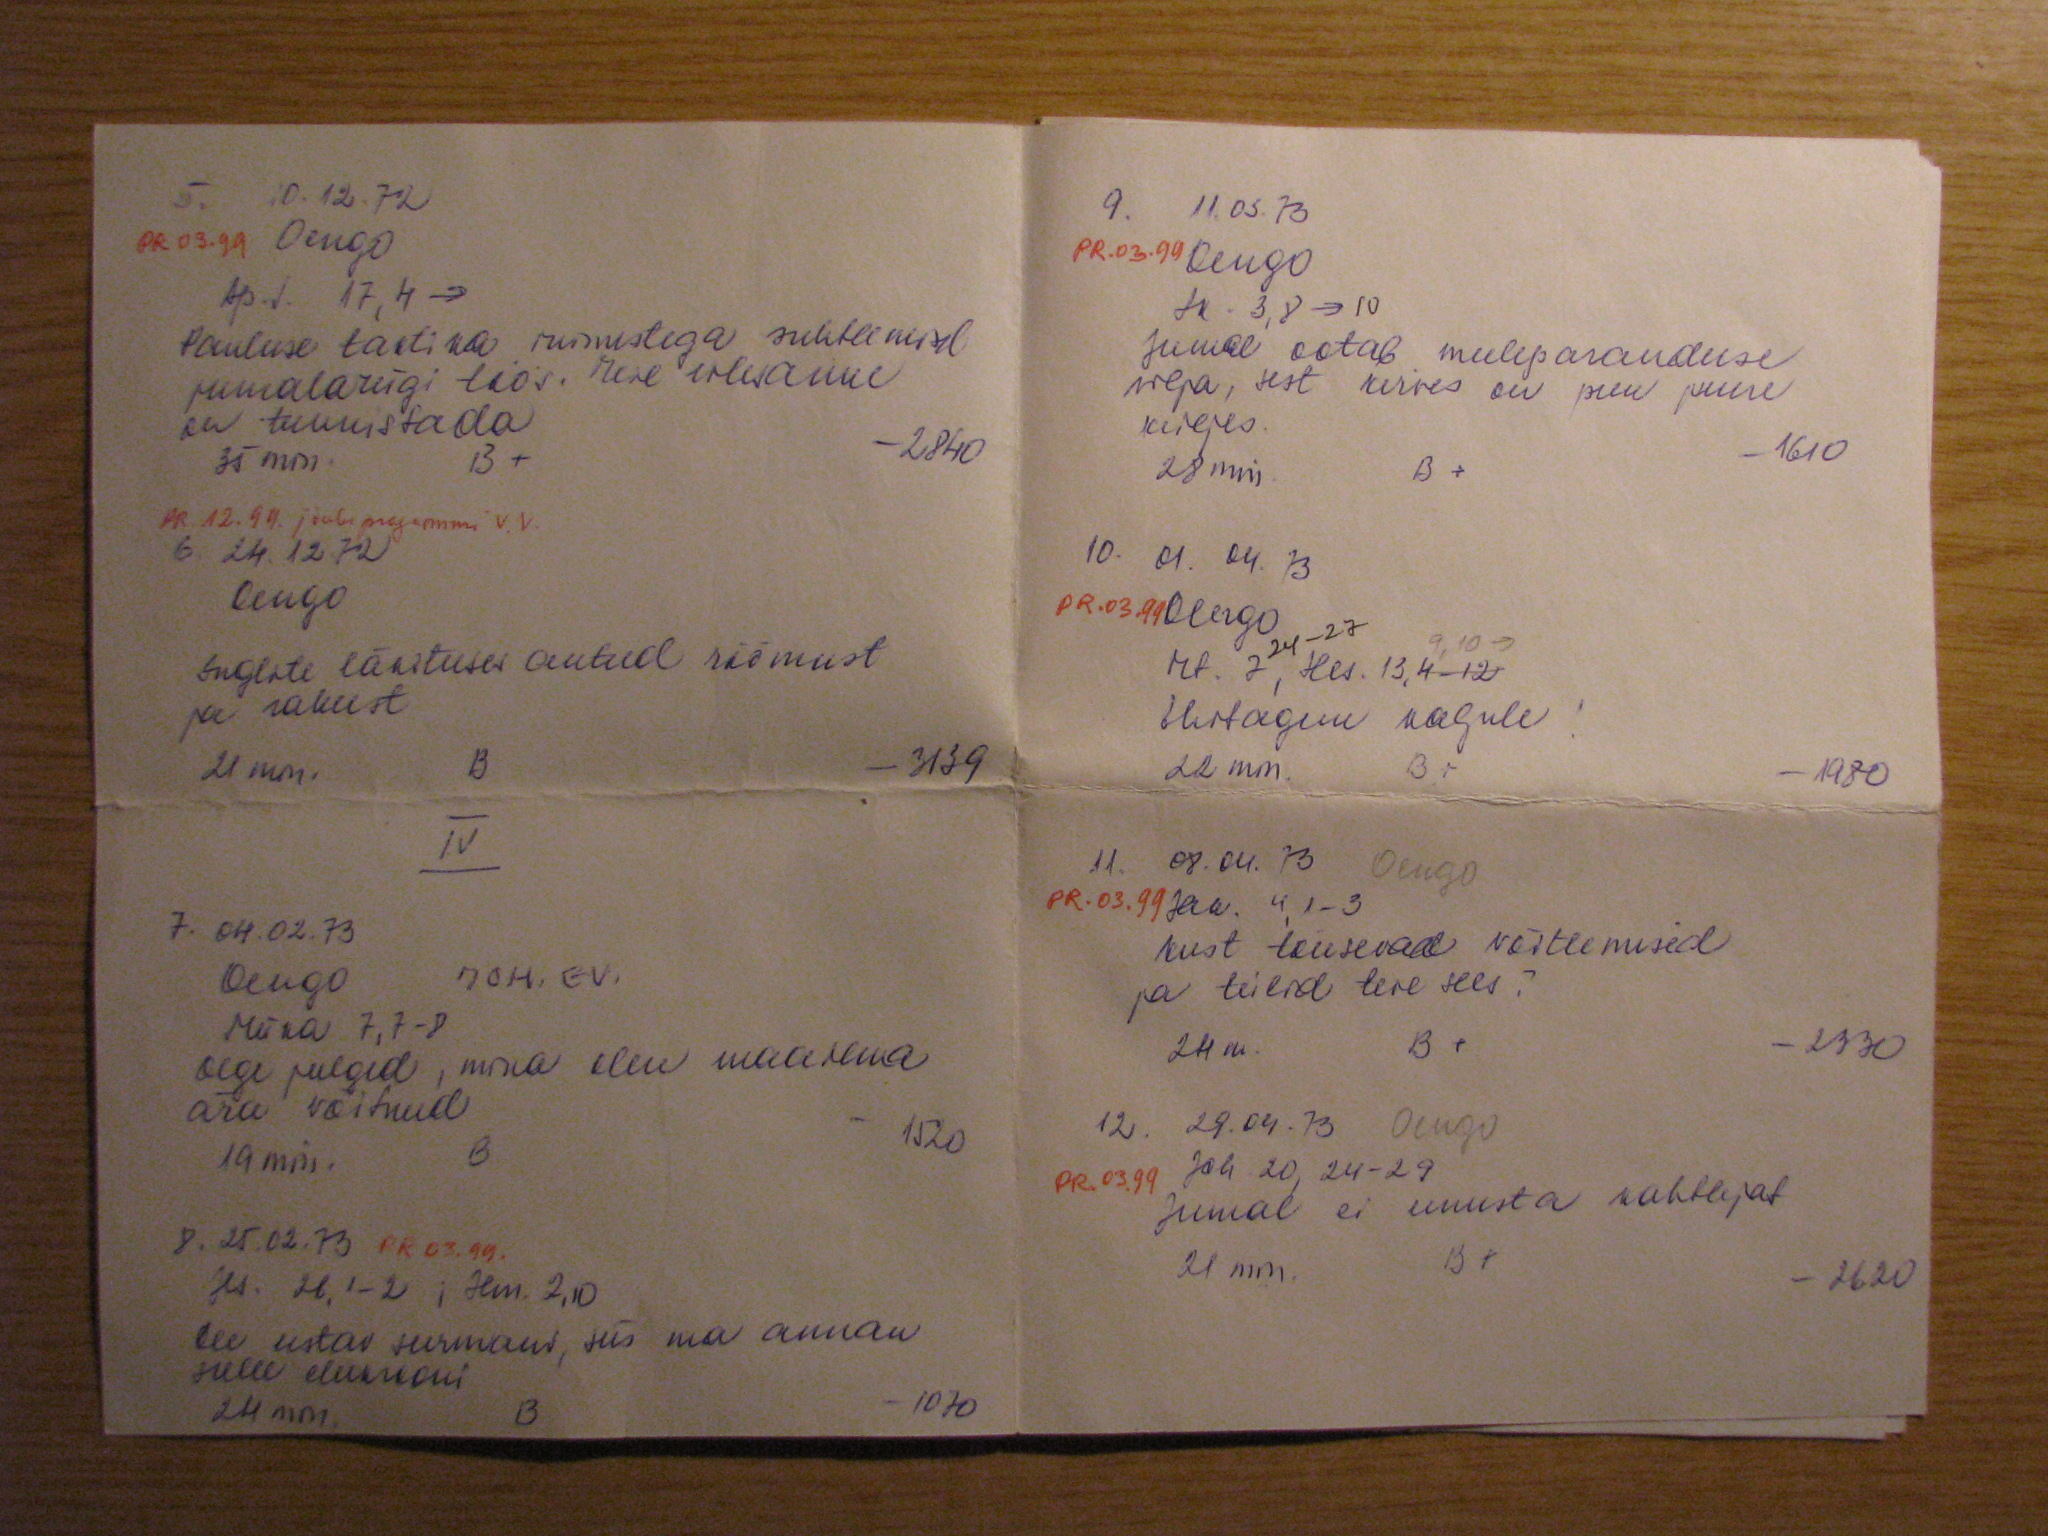 5. 10.12.72
PR 03.99 Oengo
Ap.t. 17,4 →
Pauluse taktika inimestega suhtlemisel
jumalariigi töös. Meie ülesanne
on tunnistada
35 min. B + – 2840
PR. 12.99. jõuluprogrammi V.V.
6. 24.12.72
Oengo
Inglite läkituses antud rõõmust
ja rahust
21 min. B – 3139
IV
7. 04.02.73
Oengo JOH. EV.
Miika 7,7-8
Olge julged, mina olen maailma
ära võitnud
19 min. B – 1520
8. 25.02.73 PR 03.99.
Jes. 26,1-2 ; Ilm. 2,10
Ole ustav surmani, siis ma annan
sulle elukrooni
24 min. B – 1070
9. 11.03.73
PR.03.99 Oengo
Lk. 3,8 → 10
Jumal ootab meeleparanduse
vilja, sest kirves on puu juure
küljes.
28 min. B + – 1610
10. 01. 04. 73
PR.03.99 Oengo
24-27 9,10 →
Mt. 7, Hes. 13,4-12
Ehitagem kaljule!
22 min. B + – 1980
11. 08.04.73 Oengo
PR.03.99 Jak. 4,1-3
Kust tõusevad võitlemised
ja tülid teie sees?
24 m. B + – 2330
12. 29.04.73 Oengo
PR.03.99 Joh 20, 24-29
Jumal ei unusta kahtlejat
21 min. B + – 2620